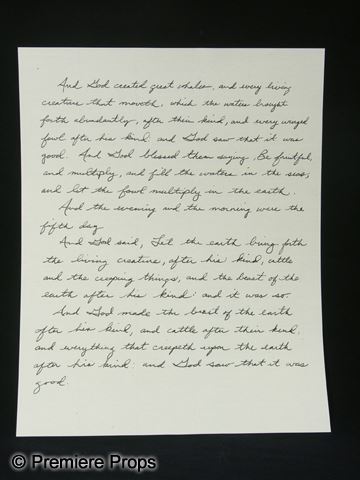 And God created great whales, and every living
creature that moveth, which the waters brought
forth abundantly, after their kind, and every winged
fowl after his kind and God saw that it was
good. And God blessed them saying, Be fruitful,
and multiply, and fill the waters in the seas,
and let the fowl multiply in the earth.
And the evening and the morning were the
fifth day
And God said, Let the earth bring forth
the living creature, after his kind, cattle
and the creeping things, and the beast of the
earth after his kind: and it was so.
And God made the beast of the earth
after his kind, and cattle after their kind,
and everything that creepeth upon the earth
after his kind: and God saw that it was
good.
© Premiere Props